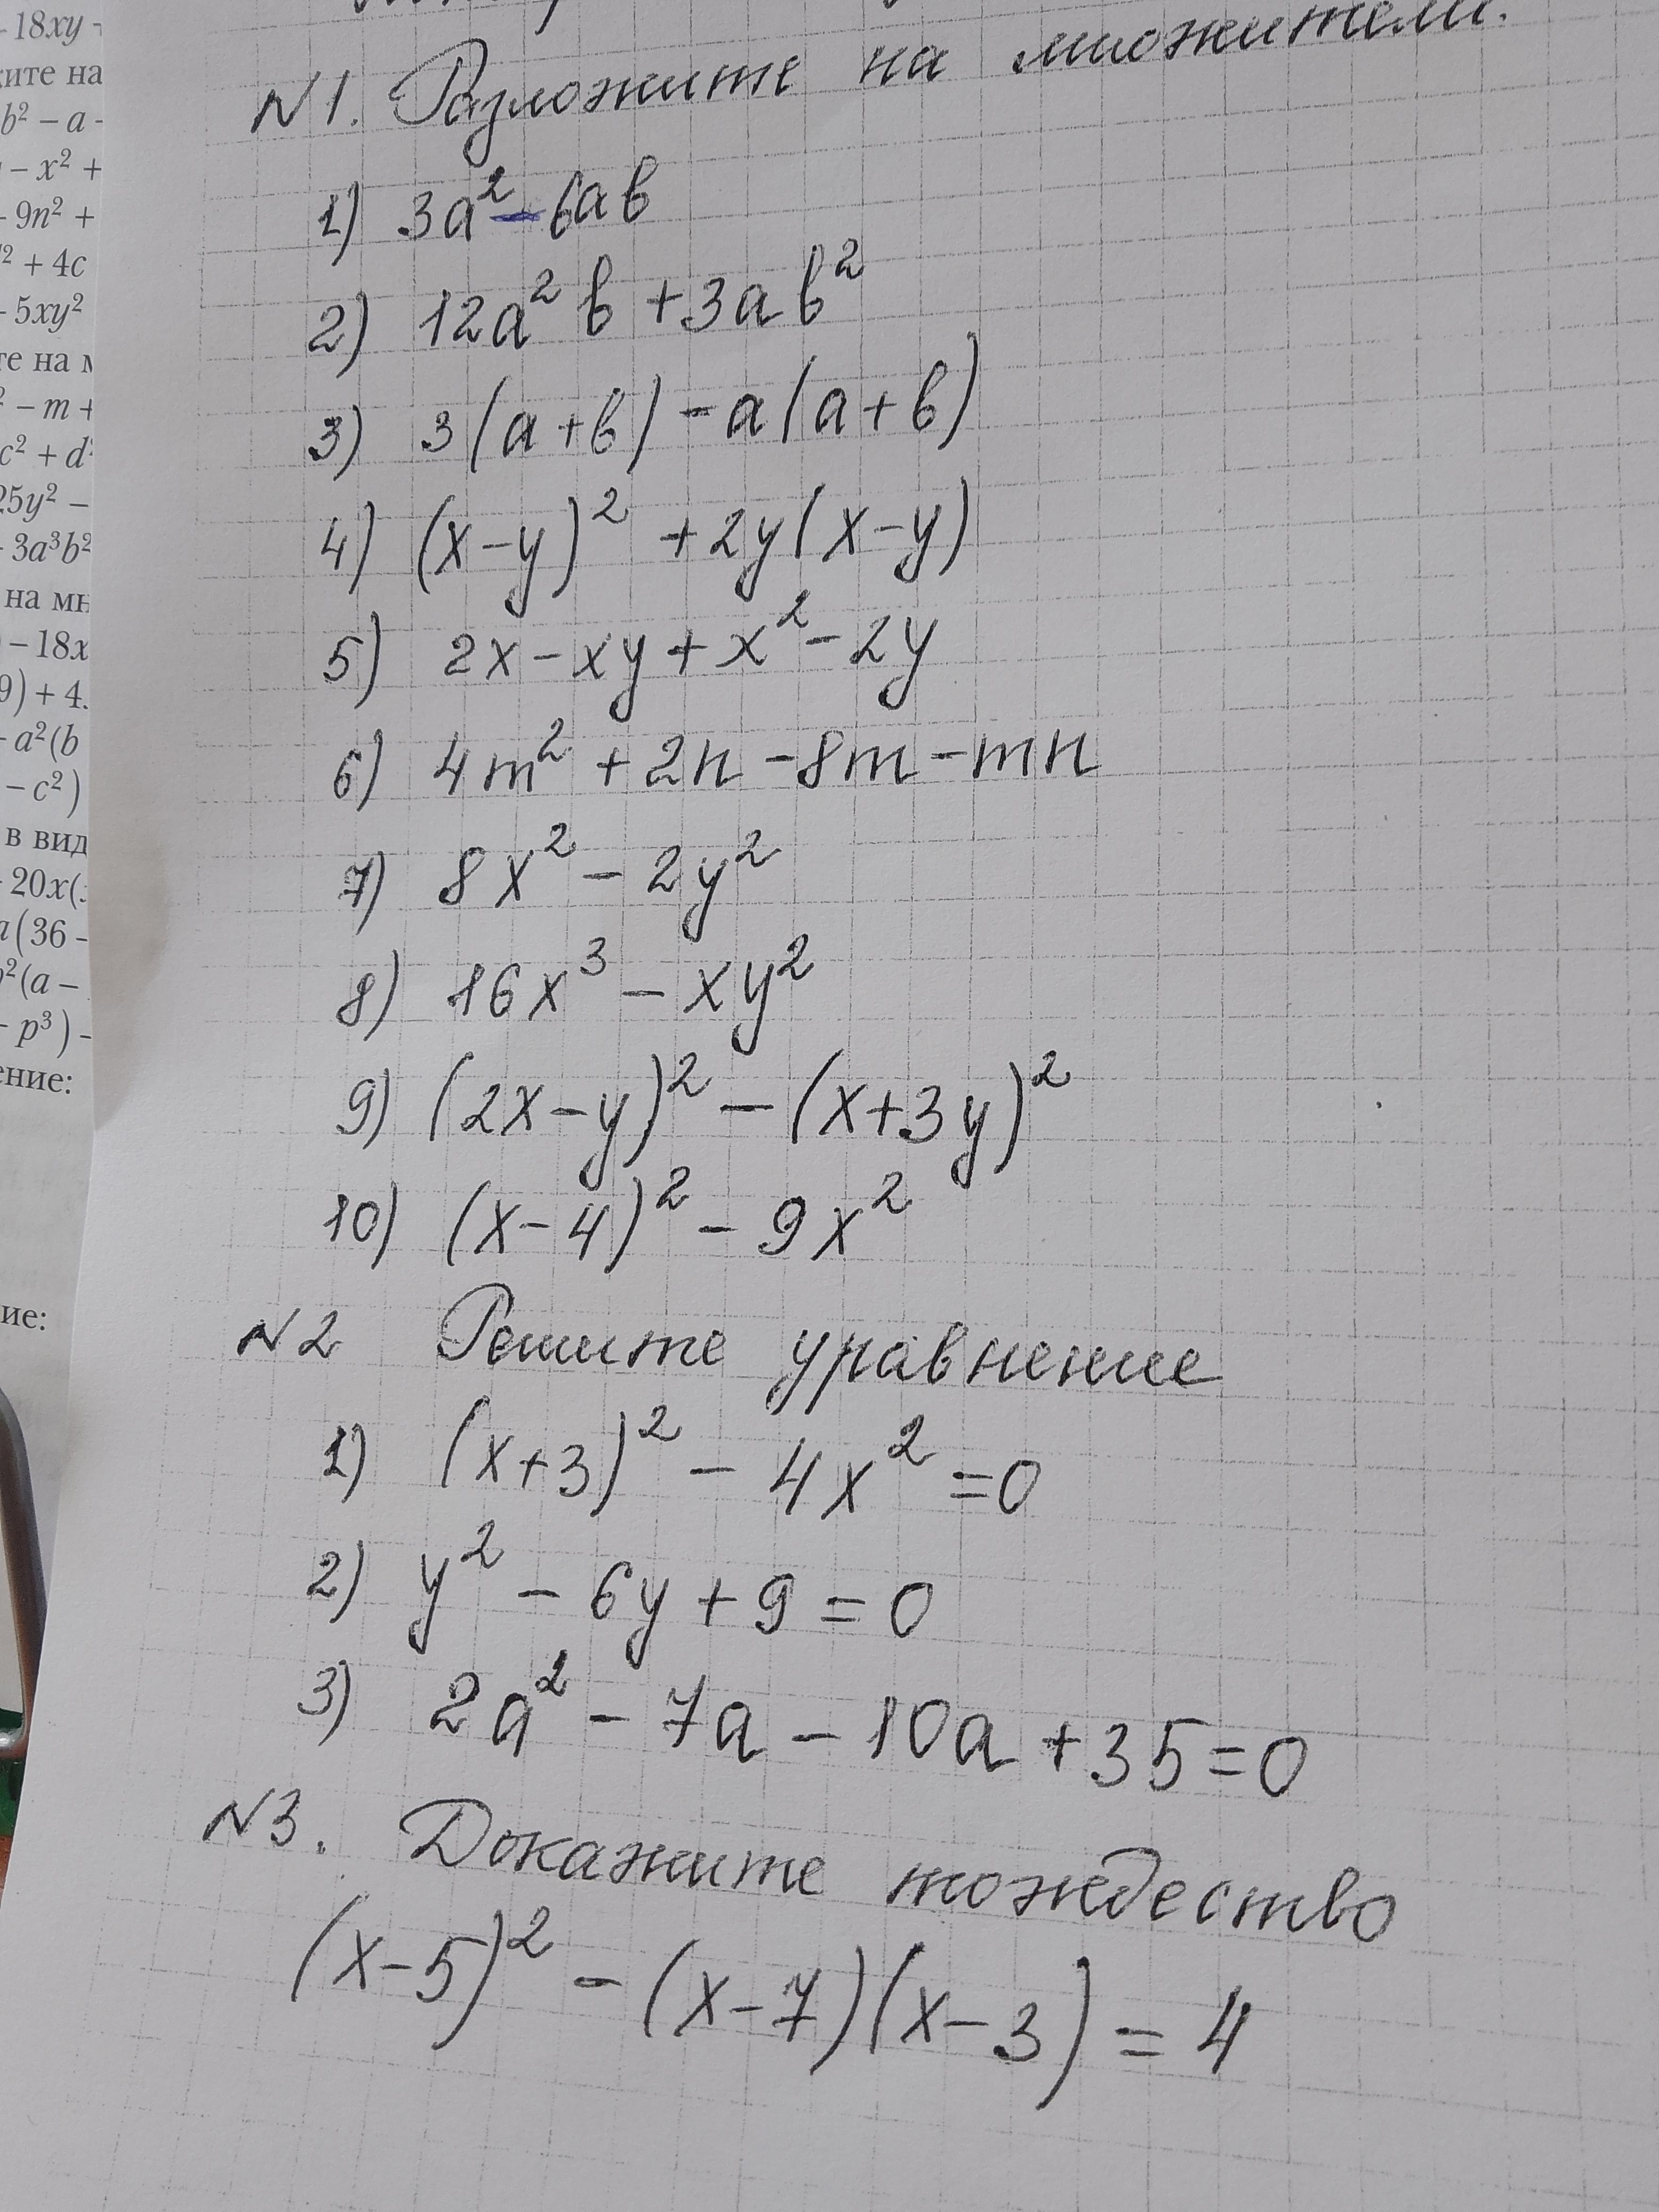 - 18xy -
ките на
b² - a -
- x² +
- 9n² +
² + 4c
- 5xy²
те на м
² - m +
c² + d²
25y² -
- 3a³b²
на мн
- 18x
9) + 4.
- a²(b
- c²)
в вид
20x(
a(36 -
²(a -
- p³) -
ение:
ие:
N1. Разложите на множители.
1) 3a² - 6ab
2) 12a²b + 3ab²
3) 3(a+b) - a(a+b)
4) (x-y)² + 2y(x-y)
5) 2x - xy + x² - 2y
6) 4m² + 2n - 8m - mn
7) 8x² - 2y²
8) 16x³ - xy²
9) (2x-y)² - (x+3y)²
10) (x-4)² - 9x²
N2 Решите уравнение
1) (x+3)² - 4x² = 0
2) y² - 6y + 9 = 0
3) 2a² - 7a - 10a + 35 = 0
N3. Докажите тождество
(x-5)² - (x-7)(x-3) = 4